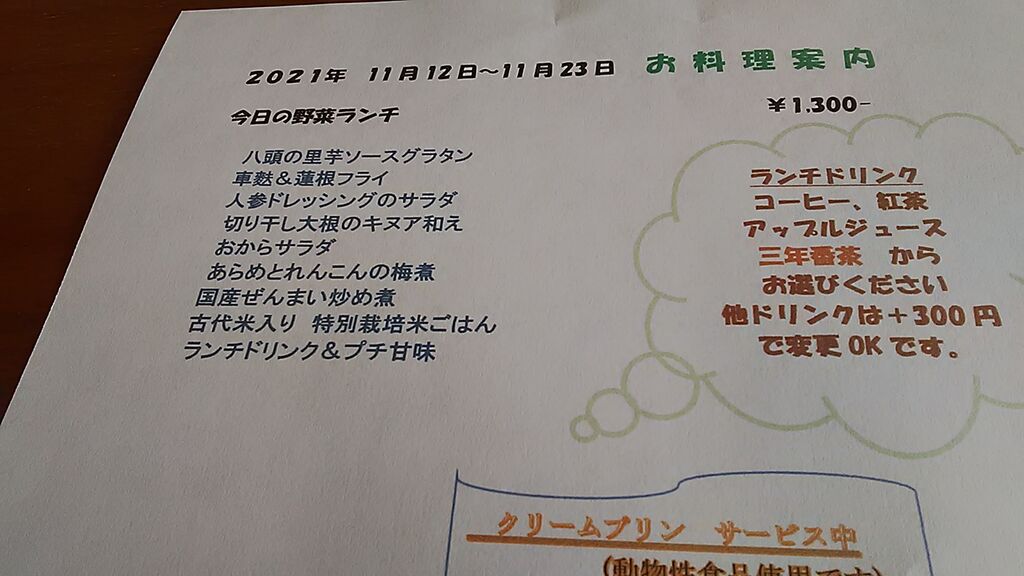 2021年 11月12日～11月23日 お料理案内
今日の野菜ランチ ￥1,300-
八頭の里芋ソースグラタン
車麩＆蓮根フライ
人参ドレッシングのサラダ
切り干し大根のキヌア和え
おからサラダ
あらめとれんこんの梅煮
国産ぜんまい炒め煮
古代米入り 特別栽培米ごはん
ランチドリンク＆プチ甘味
ランチドリンク
コーヒー、紅茶
アップルジュース
三年番茶 から
お選びください
他ドリンクは＋300円
で変更OKです。
クリームプリン サービス中
(動物性食品使用です)